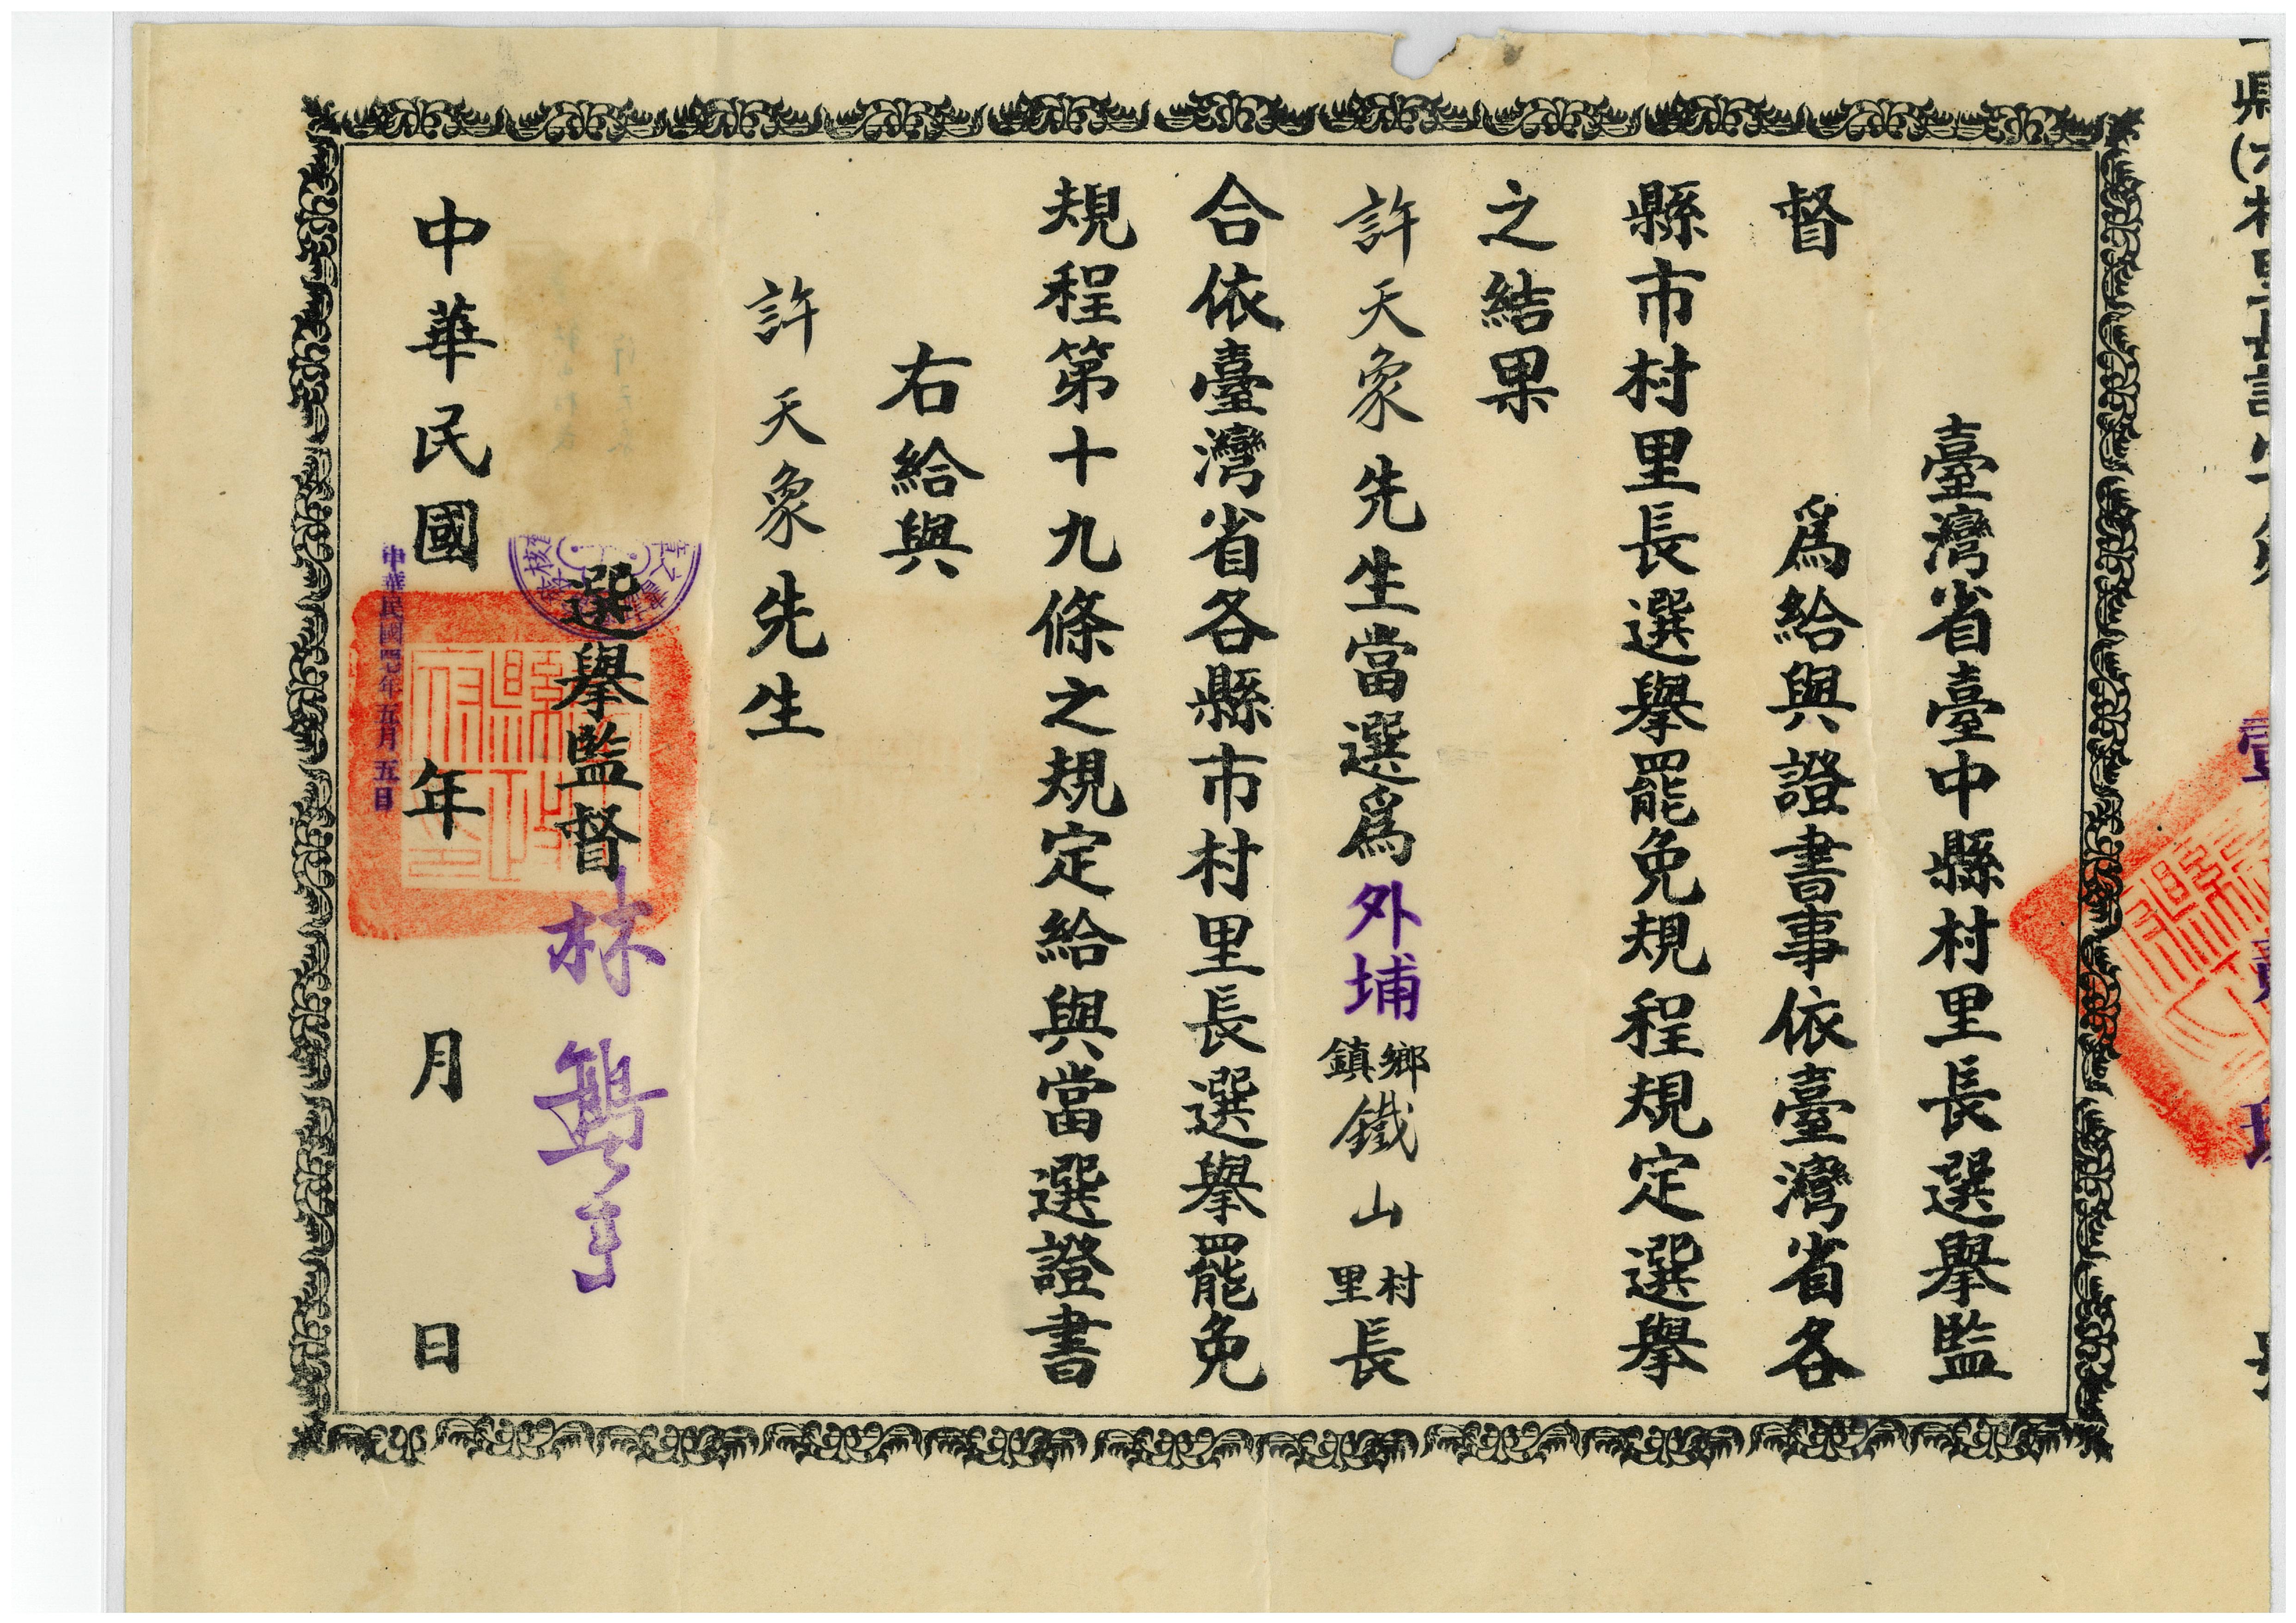 臺灣省臺中縣村里長選舉監
督　　　爲給與證書事依臺灣省各
縣市村里長選舉罷免規程規定選舉
之結果
許天象先生當選爲外埔鄉鎮鐵山村里長
合依臺灣省各縣市村里長選舉罷免
規程第十九條之規定給與當選證書
右給與
許天象先生
選舉監督林鶴年
中華民國　年　月　日
中華民國四七年五月五日